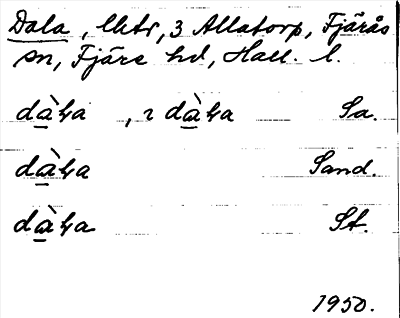 Dala, lktr, 3 Allatorp, Fjärås
sn, Fjäre hd, Hall. l.
dàɧa , ı dàɧa Sa.
dàɧa Sand.
dàɧa St.
1950.